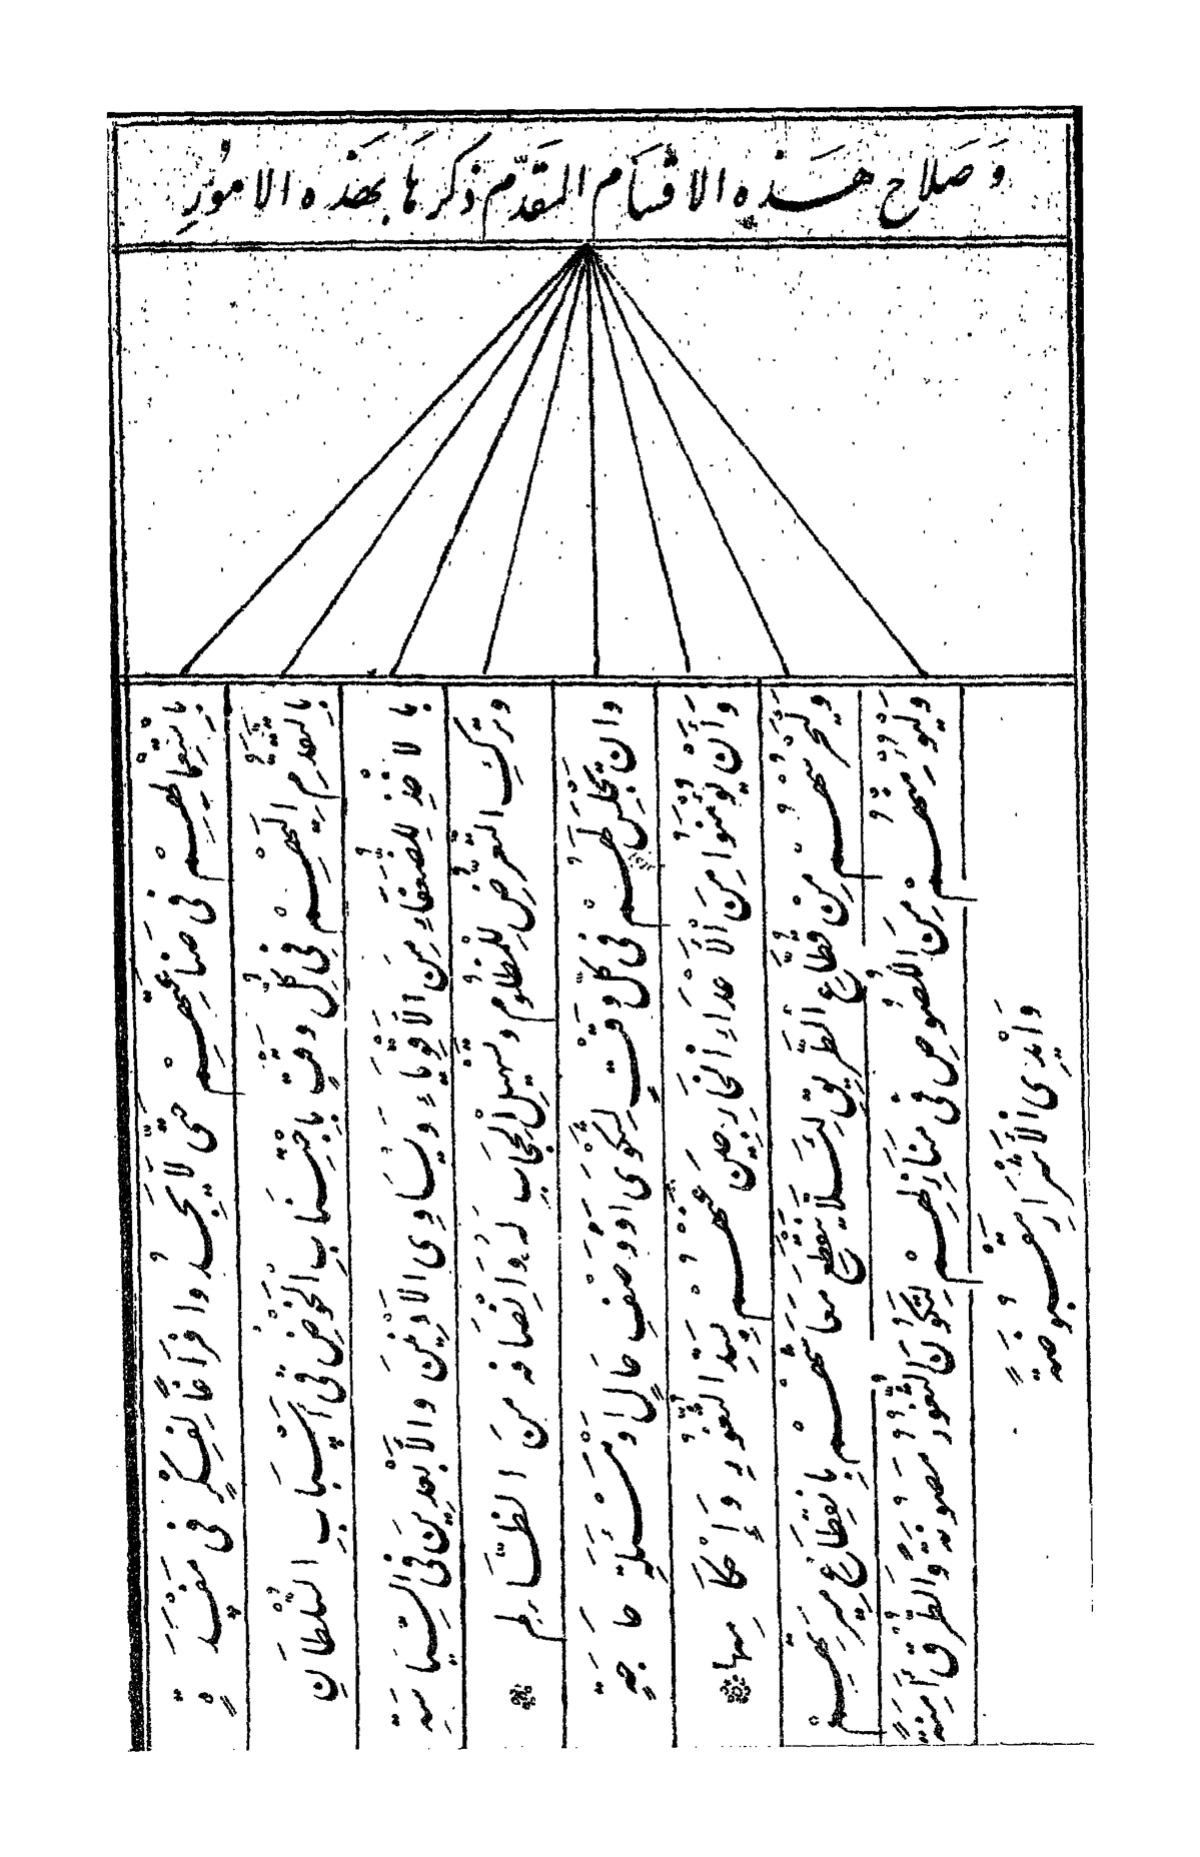 وَصَلاح هَذه الاقسَام المقَدَّم ذكرهَا بهَذه الامُور
بِاشْتِغَالِهِمْ فى صَنَائِعِهِمْ حتّى لَا يَجِدُوا فَرَاغًا لِفِكْرٍ فى مَفْسَدَةٍ
بالتّقدُّمِ اليَهِمْ فى كُلِّ وَقْتٍ بِاجْتِنَابِ الْخَوْضِ فى اَسْبَابِ السُّلْطَانِ
بالاخْذِ لِلضُّعَفَاءِ مِنَ الاَقْوِيَاءِ وَيُسَاوِى الاَدْنَيْنَ والاَبْعَدِينَ فى السِّيَاسَةِ
وتَركِ التَّعَرُّضِ لِلْمَظْلُومِ وَتَسْهِيلِ الْحِجَابِ لَهُ وَانْصَافِه مِنَ الظَّالِمِ
وان يَجْلِسَ لَهُمْ فى كلِّ وَقْتٍ لِشَكْوَى اَوْ وَصْفِ حَالٍ اَوْ مَسْئَلَةِ حَاجَةٍ
وَأَنْ يُؤْمَنُوا مِنَ الْأَعْدَاءِ الْخَارِجِينَ عَنْهُمْ بِسَدِّ الثُّغُورِ وَإِحْكَامِهَا
وَلْيَحْرُسْهُمْ مِنْ قُطَّاعِ الطَّرِيقِ لِئَلَّا يَنْقَطِعَ مَعَاشُهُمْ بِانْقِطَاعِ مِيرَتِهِمْ
مِنَ اللُّصُوصِ فى مَنَازِلِهِمْ لِتَكُونَ الثُّغُورُ مَصُونَةً وَالطُّرُقُ آمِنَةً
وَاَيْدِى الْأَشْرَارِ مَقْبُوضَةً